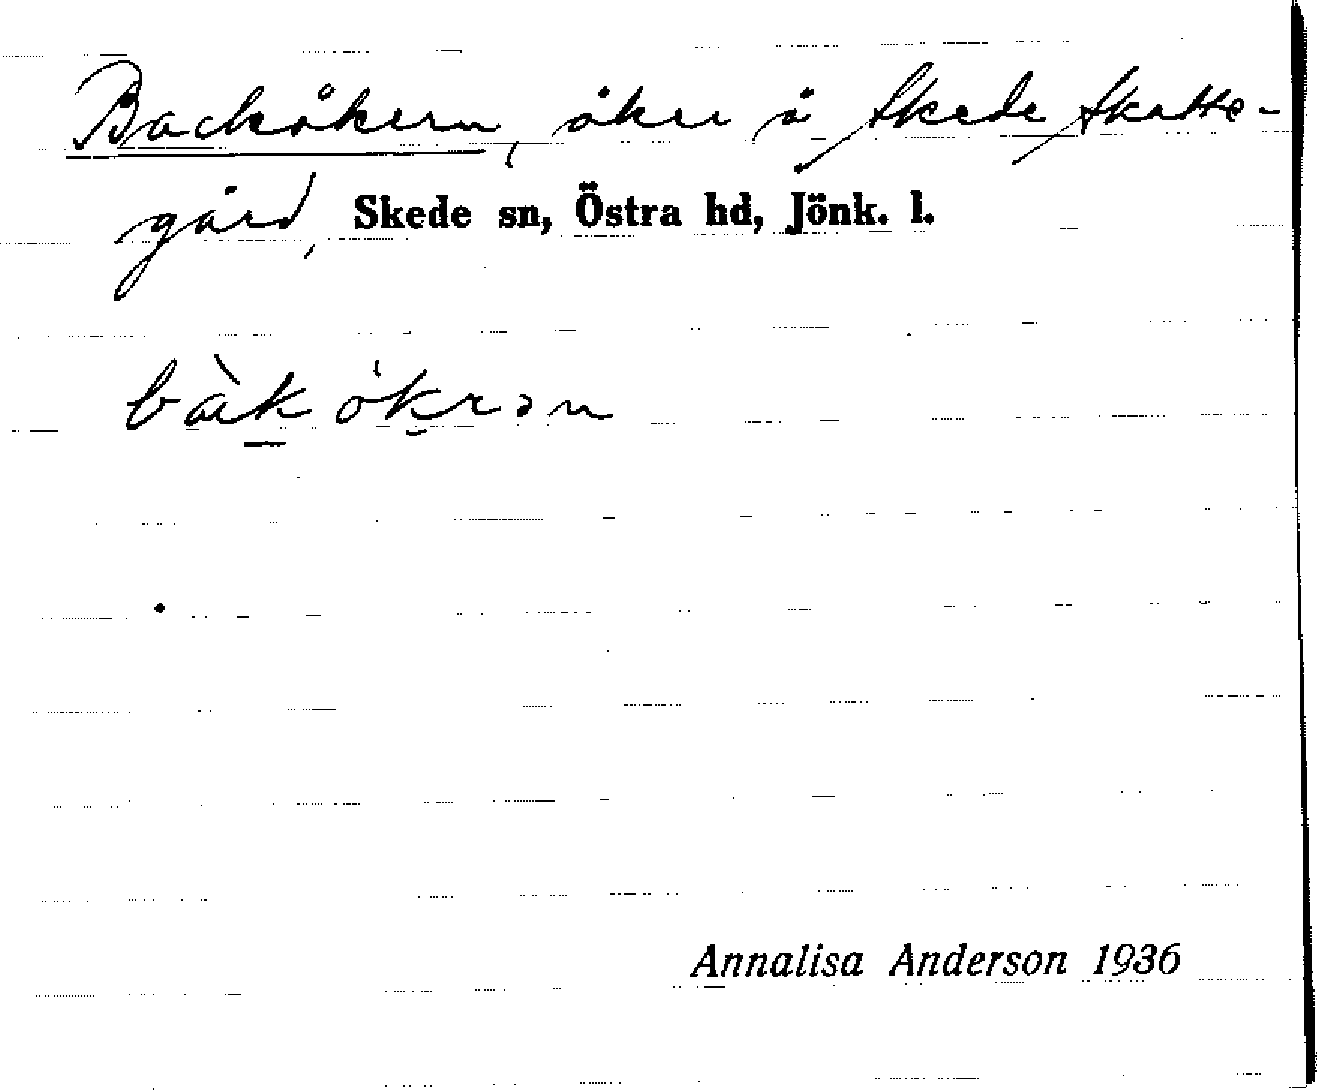 Backåkern, åker å Skede Skatte-
gård, Skede sn, Östra hd, Jönk. l.
bàk åkrən
Annalisa Anderson 1936